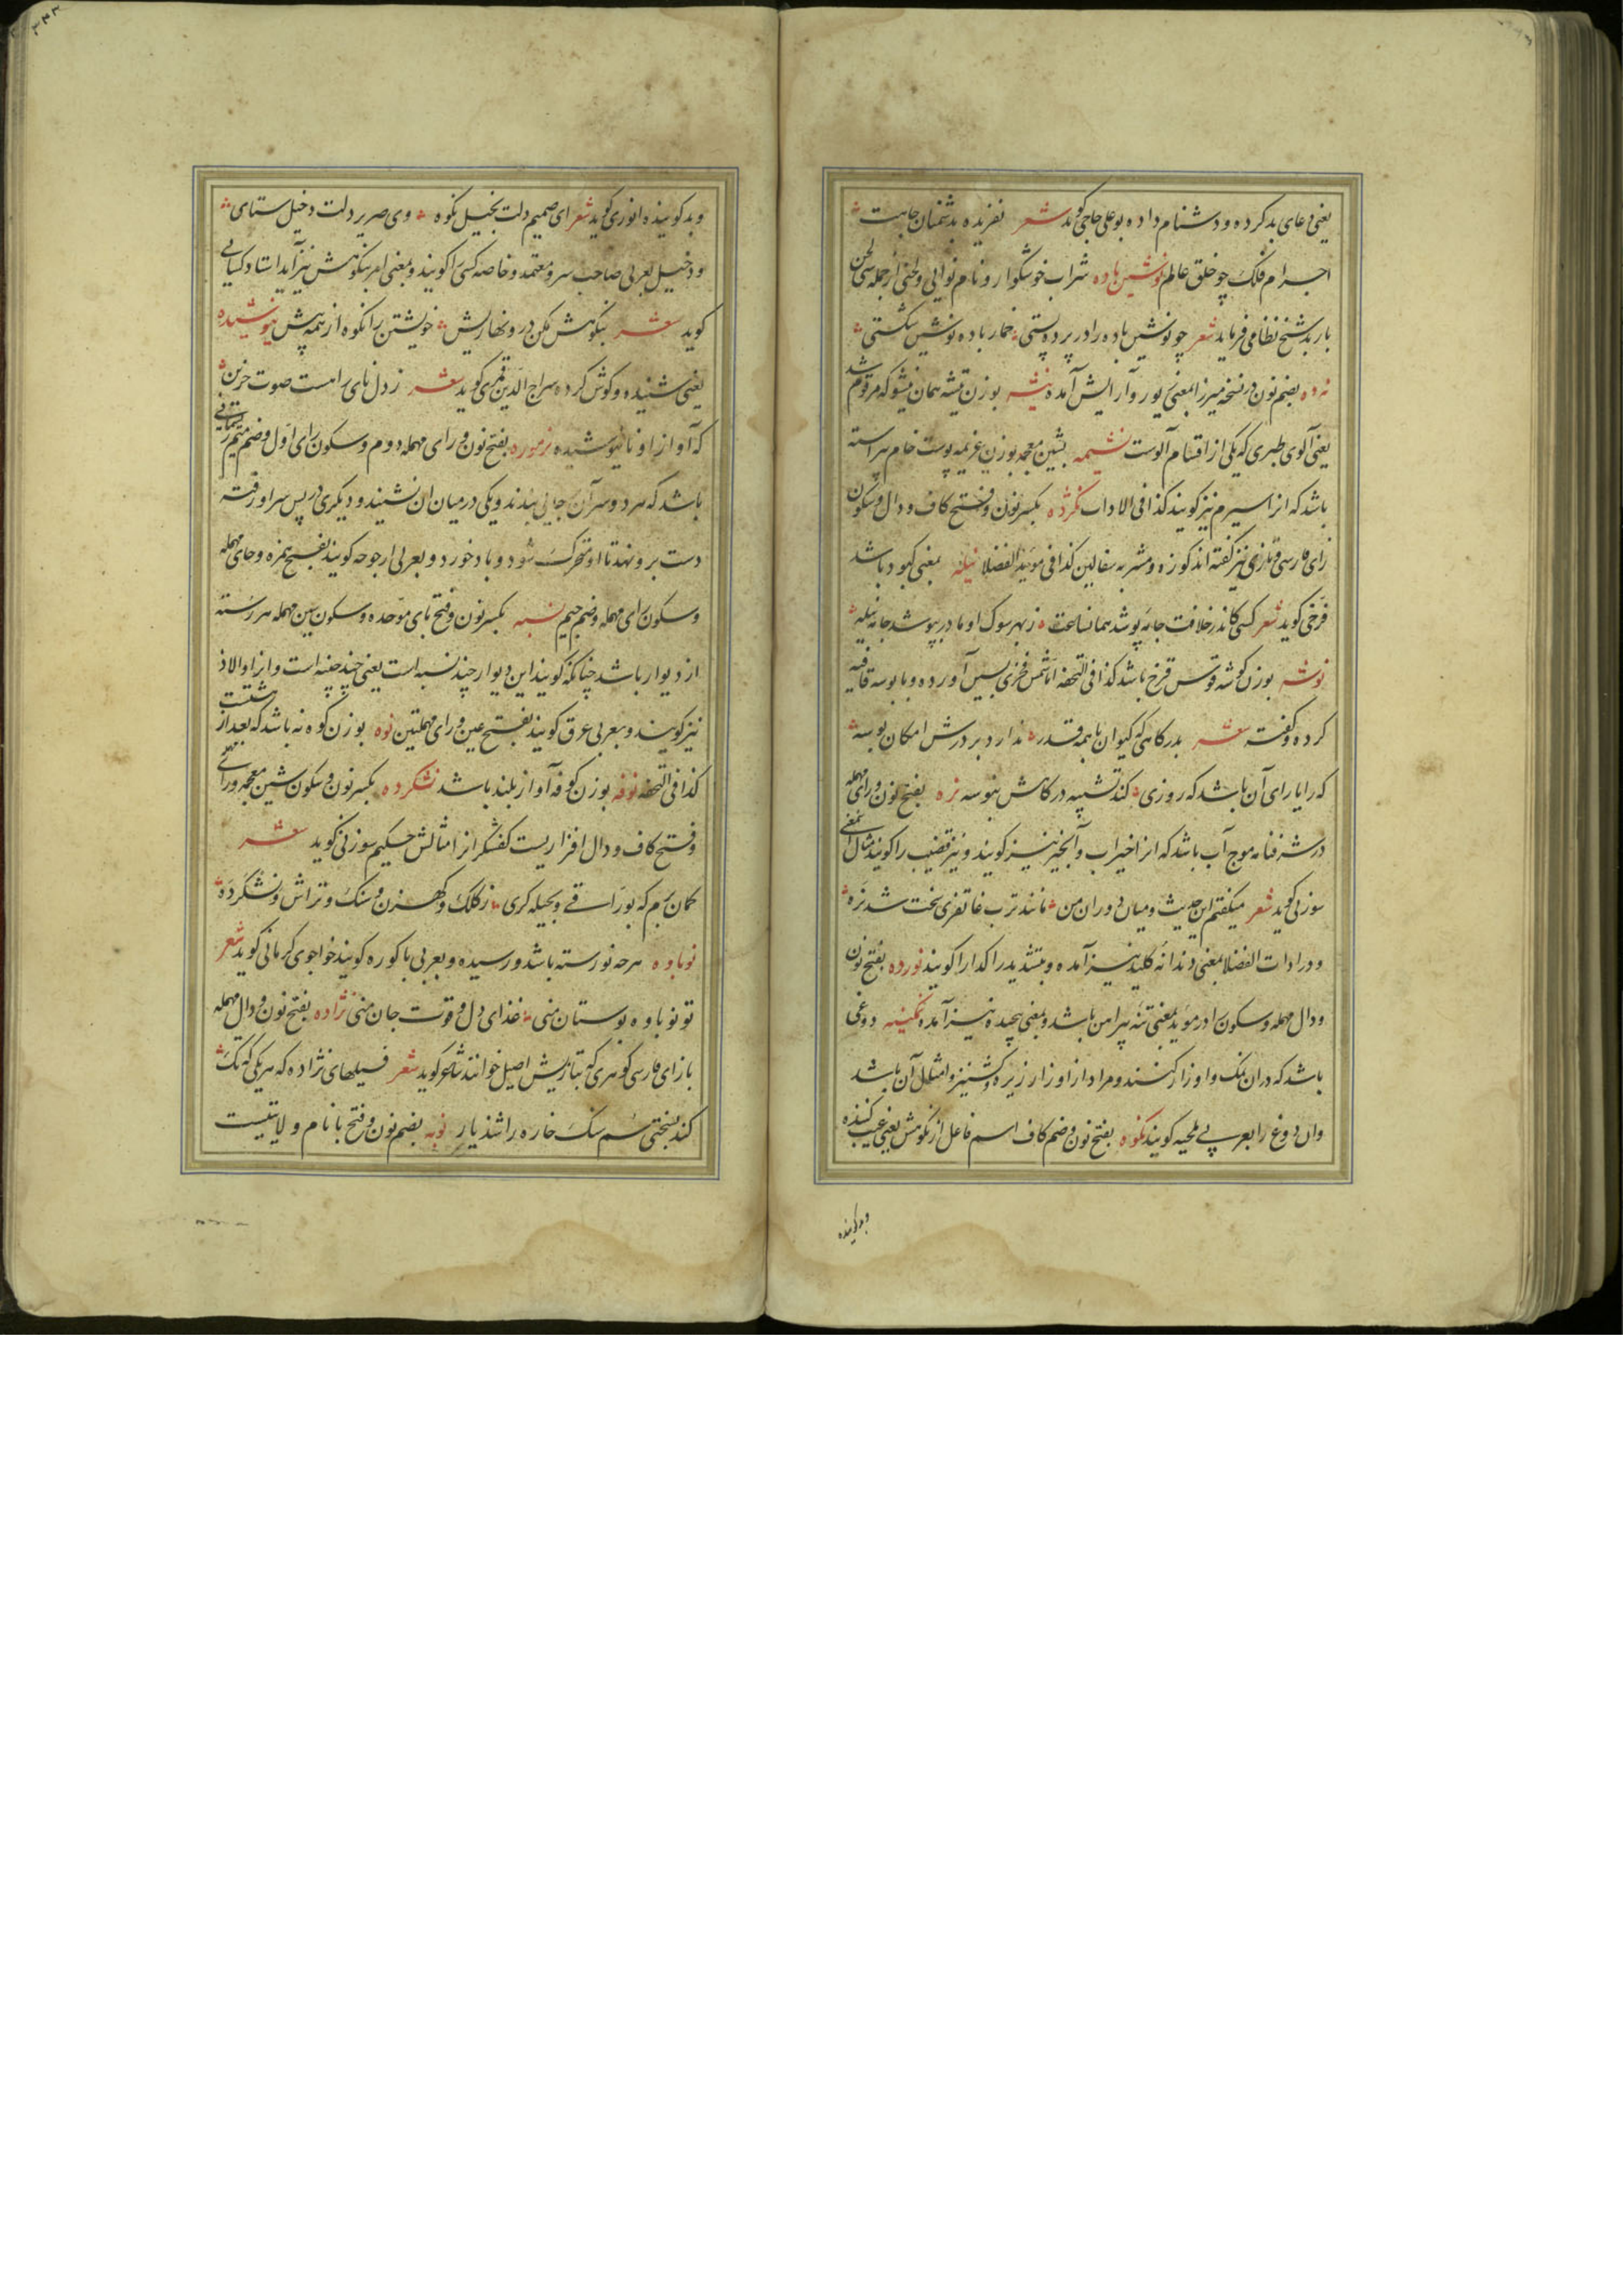 یعنی دعای بد کرده و دشنام داده بوعلی حاجی گوید شعر نفریده بدشمنان جاهت
اجرام فلک چو خلق عالم نوشین باده شراب خوشکوار و نام نوایی ولحنی از جمله سی لحن
باربد شیخ نظامی فرماید شعر چو نوشین باده را در پرده بستی خمار باده نوشین شکستی
بضم نون در نسخه میرزا بمعنی یور و آرایش آمده نیشه بوزن تیشه همان نیشو که مرقوم شد
یعنی آلوی طبری که یکی از اقسام آلوست نشیمه بشین معجمه بوزن غریمه پوست خام پیراسته
باشد که انرا سیرم نیز کویند کذا فی الاداب نکرده بکسر نون و فتح کاف و دال و سکون
زای فارسی و تازی نیز گفته اند کوزه و مشربه سفالین کذا فی موید الفضلا نیله بمعنی کبود باشد
فرخی کوید شعر کسی کاندر خلافت جامه پوشد همانساعت ز بهر سوک او مادر بپوشد جامه نیله
نوشه بوزن کوشه قوس قزح باشد کذا فی التحفه اما شمس فخری بسین آورده و با بوسه قافیه
کرده و گفته شعر بدرکاهی که کیوان با همه قدر ندارد بر درش امکان بوسه
که رایارای آن باشد که روزی کند تشبیه درکاهش بنوسه نره بفتح نون و رای مهمله
در شرفنامه موج آب باشد که انرا خیزاب و آبخیز نیز کویند و نیز قضیب را کویند مثال این معنی
سوزنی کوید شعر میکفتم این حدیث و میان دوران من مانند ترب غاتفری سخت شد نره
و در ادات الفضلا بمعنی دندانه کلید نیز آمده و بتشدید را کدا را کویند نورده بفتح نون
و دال مهمله و سکون را در موید بمعنی تنه پیراهن باشد و بمعنی پیچیده نیز آمده نمکینه دوغی
باشد که در ان نمک و اوزار کنند و مراد از اوزار زیره و کشنیز و امثال آن باشد
وان دوغ را بعربی ملحیه کویند نکوه بفتح نون و ضم کاف اسم فاعل از نکوهش یعنی عیب کننده
وبدکوینده
وبد کوینده انوری کوید شعر ای صمیم دلت بخیل نکوه وی صریر دلت دخیل ستای
و دخیل بعربی صاحب سر و معتمد و خاصه کسی را کویند و بمعنی امر بنکوهش نیز آید استاد کسایی
کوید شعر نکوهش مکن در و نهاریش خویشتن را نکوه از همه پیش نیوشیده
یعنی شنیده و کوش کرده سراج الدین قمری کوید شعر ز دل نای راست صوت حزین
که آواز او نانیوشیده نرموره بفتح نون و رای مهمله دوم و سکون رای اول و ضم میم ریسمانی
باشد که هر دو سر آن جایی ببندند و یکی در میان ان نشیند و دیکری در پس سر او رفته
دست بر و نهد تا او متحرک شود و باد خورد و بعربی ارجوحه کویند بفتح همزه و حای مهمله
و سکون رای مهمله و ضم جیم نسبه بکسر نون و فتح بای موحده و سکون سین مهمله هر رسته
از دیوار باشد چنانکه کویند این دیوار چند نسبه است یعنی چند چینه است و انرا والاذ
نیز کویند و بعربی عرق کویند بفتح عین و رای مهملتین نوه بوزن کوه نه باشد که بعد از هشتست
کذا فی التحفه نوفه بوزن کوفه آواز بلند باشد نشکرده بکسر نون و سکون شین معجمه و رای
و فتح کاف و دال افزاریست کفشکر انرا مثالش حکیم سوزنی کوید شعر
کمان برم که بوراقی و بحیله کری ز کلک و کهزن و سنک و تراش و نشکرده
نوباوه هر چه نو رسته باشد و رسیده و بعربی باکوره کویند خواجوی کرمانی کوید شعر
تو نوباوه بوستان منی غذای دل و قوت جان منی نژاده بفتح نون و دال مهمله
با زای فارسی کوهری که بتازیش اصیل خوانند شاعر کوید شعر فسیلهای نژاده که هر یکی که تک
کند بسختی سم سنک خاره را شذیار نوبه بضم نون و فتح با نام ولایتیست